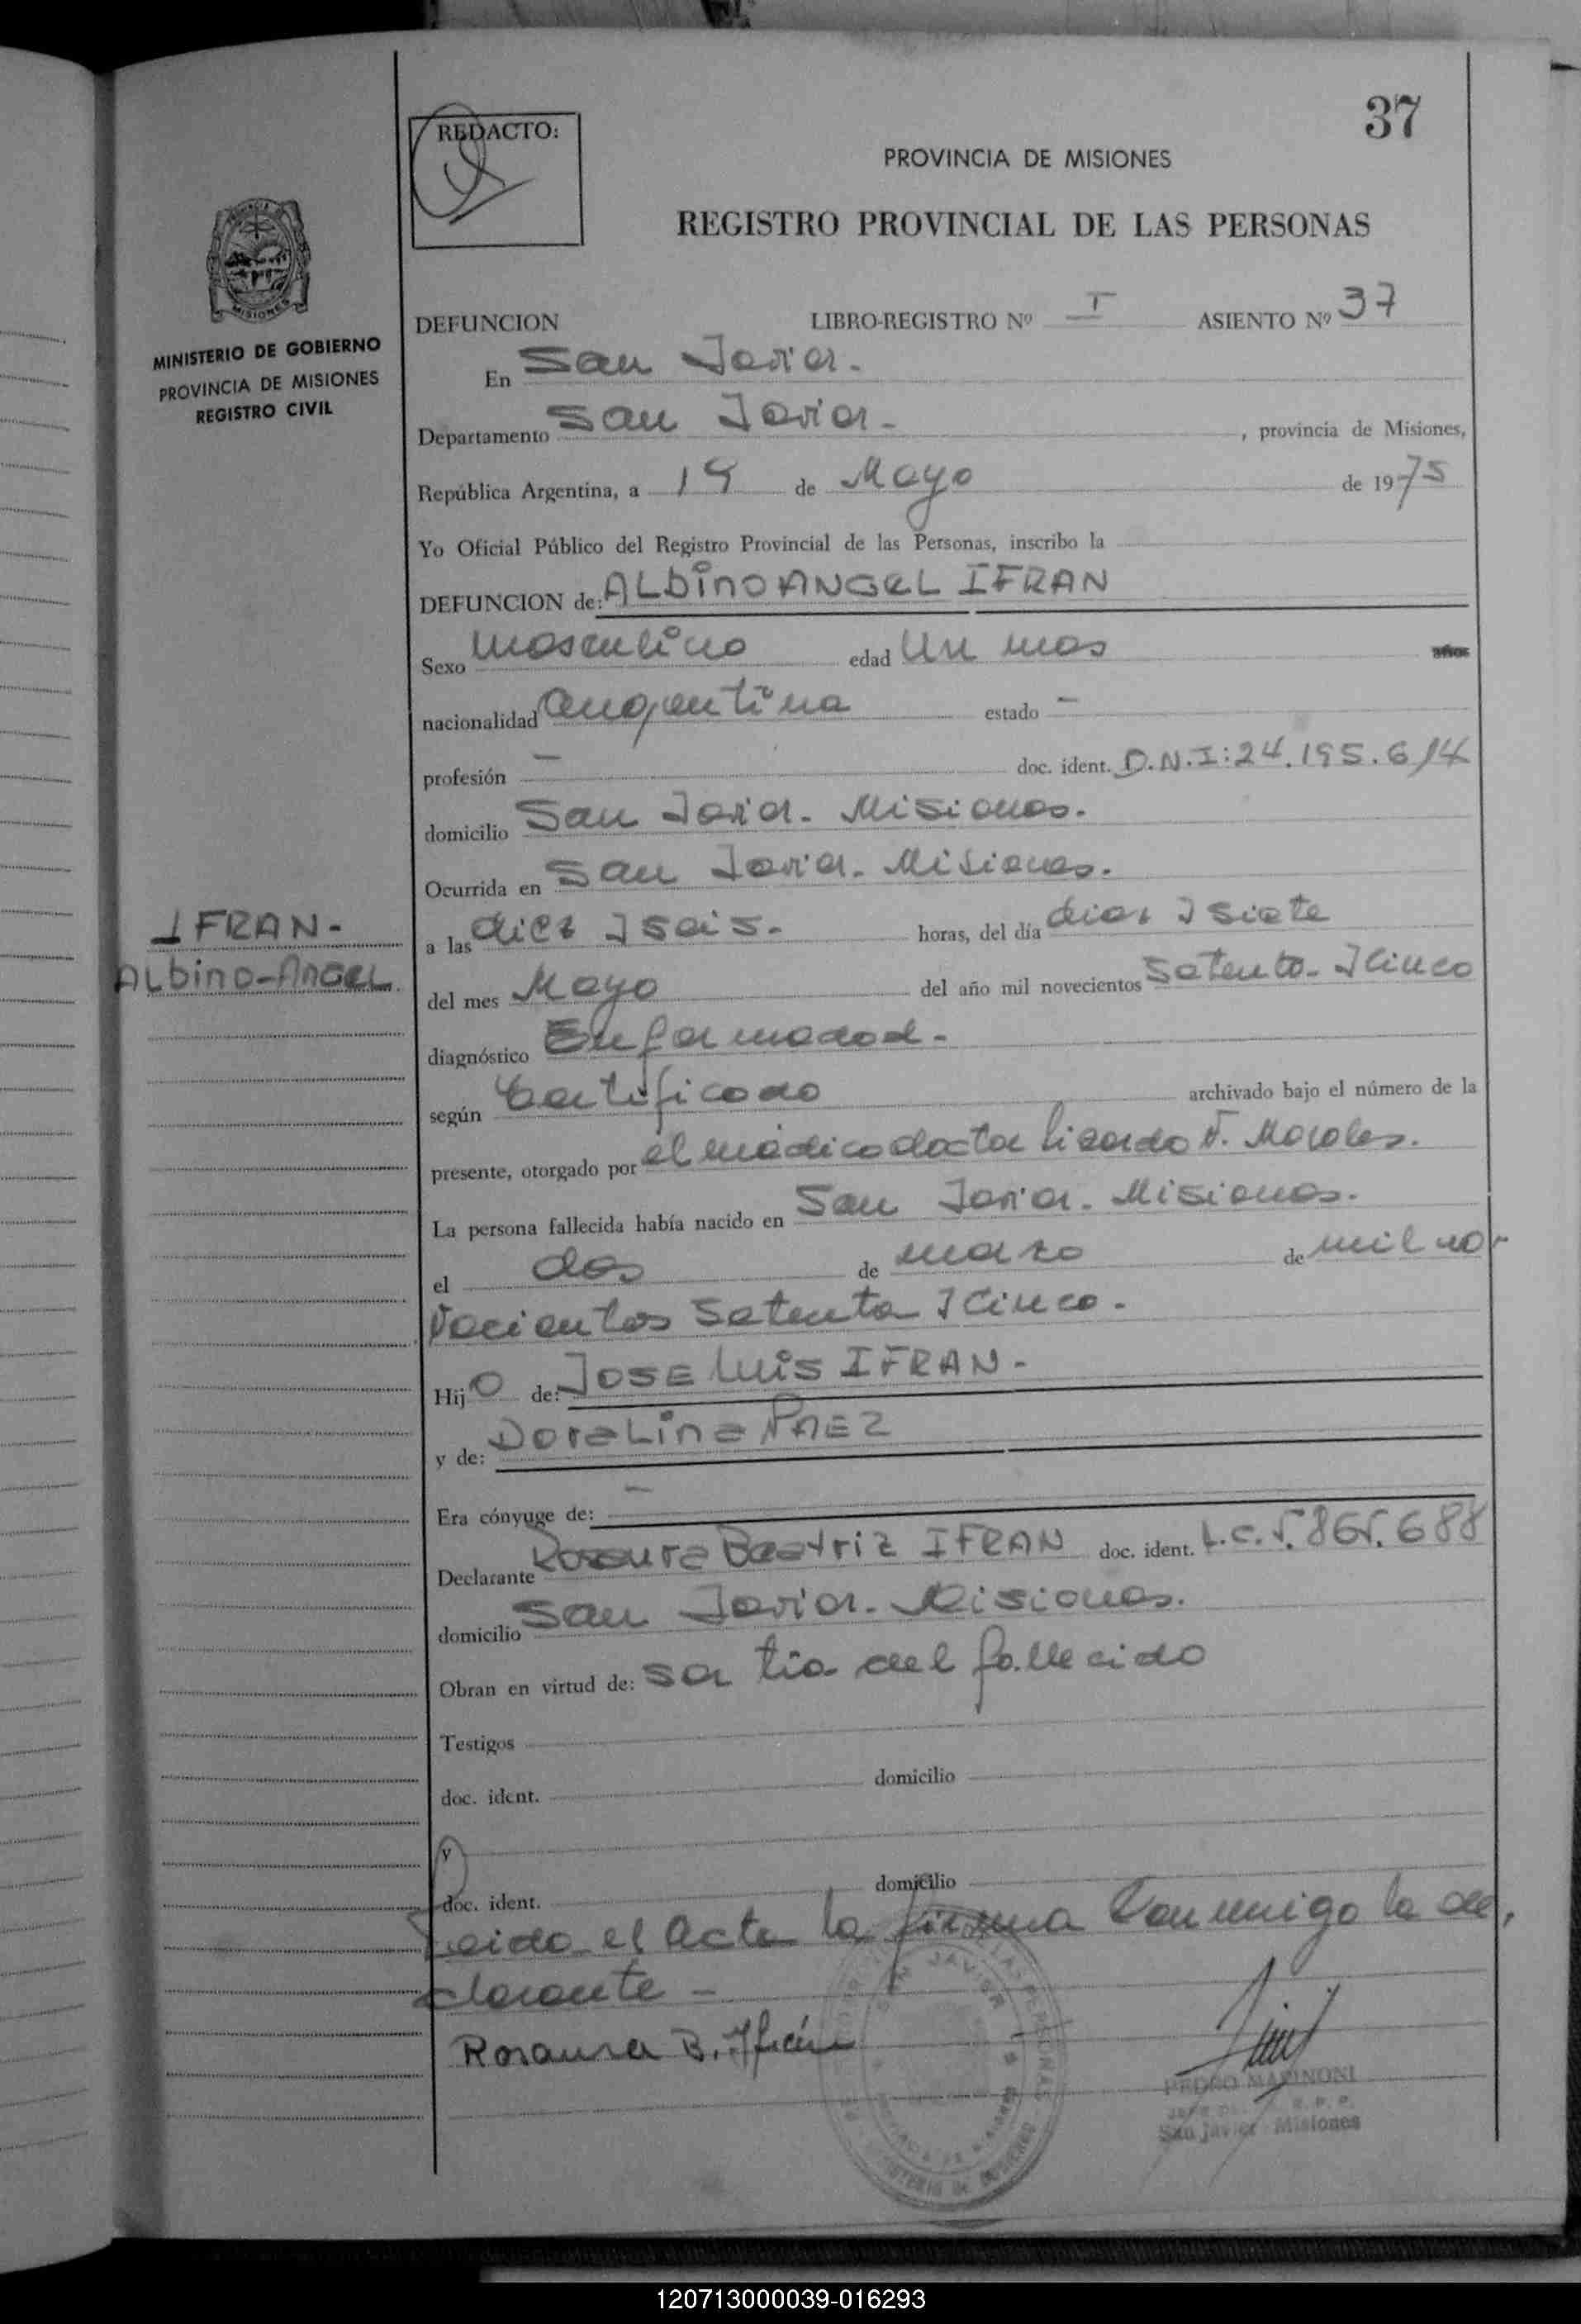 37
REDACTO:
PROVINCIA DE MISIONES
REGISTRO PROVINCIAL DE LAS PERSONAS
MINISTERIO DE GOBIERNO
PROVINCIA DE MISIONES
REGISTRO CIVIL
DEFUNCION LIBRO-REGISTRO Nº I ASIENTO Nº 37
En San Javier.
Departamento San Javier - , provincia de Misiones,
República Argentina, a 19 de Mayo de 1975
Yo Oficial Público del Registro Provincial de las Personas, inscribo la
DEFUNCION de: ALbino ANGEL IFRAN
Sexo masculino edad Un mes años
nacionalidad argentina estado -
profesión - doc. ident. D.N.I: 24.195.614
domicilio San Javier. Misiones.
Ocurrida en San Javier. Misiones.
IFRAN-
ALbino-ANGEL.
a las diez y seis. horas, del día diez y siete
del mes Mayo del año mil novecientos Setenta y cinco
diagnóstico Enfermedad.
según Certificado archivado bajo el número de la
presente, otorgado por el médico doctor Lisardo V. Morales.
La persona fallecida había nacido en San Javier. Misiones.
el dos de marzo de mil no-
vecientos Setenta y Cinco.
Hijo de: JOSE Luis IFRAN-
y de: DoraLina PAEZ
Era cónyuge de: -
Declarante Rosaura Beatriz IFRAN doc. ident. L.C. 5.865.688
domicilio San Javier. Misiones.
Obran en virtud de: ser tia del fallecido
Testigos
doc. ident. domicilio
y
doc. ident. domicilio
Leida el Acta la firma Conmigo la de,
clarante -
Rosaura B. Ifrán
PEDRO MARINONI
San Javier Misiones
120713000039-016293